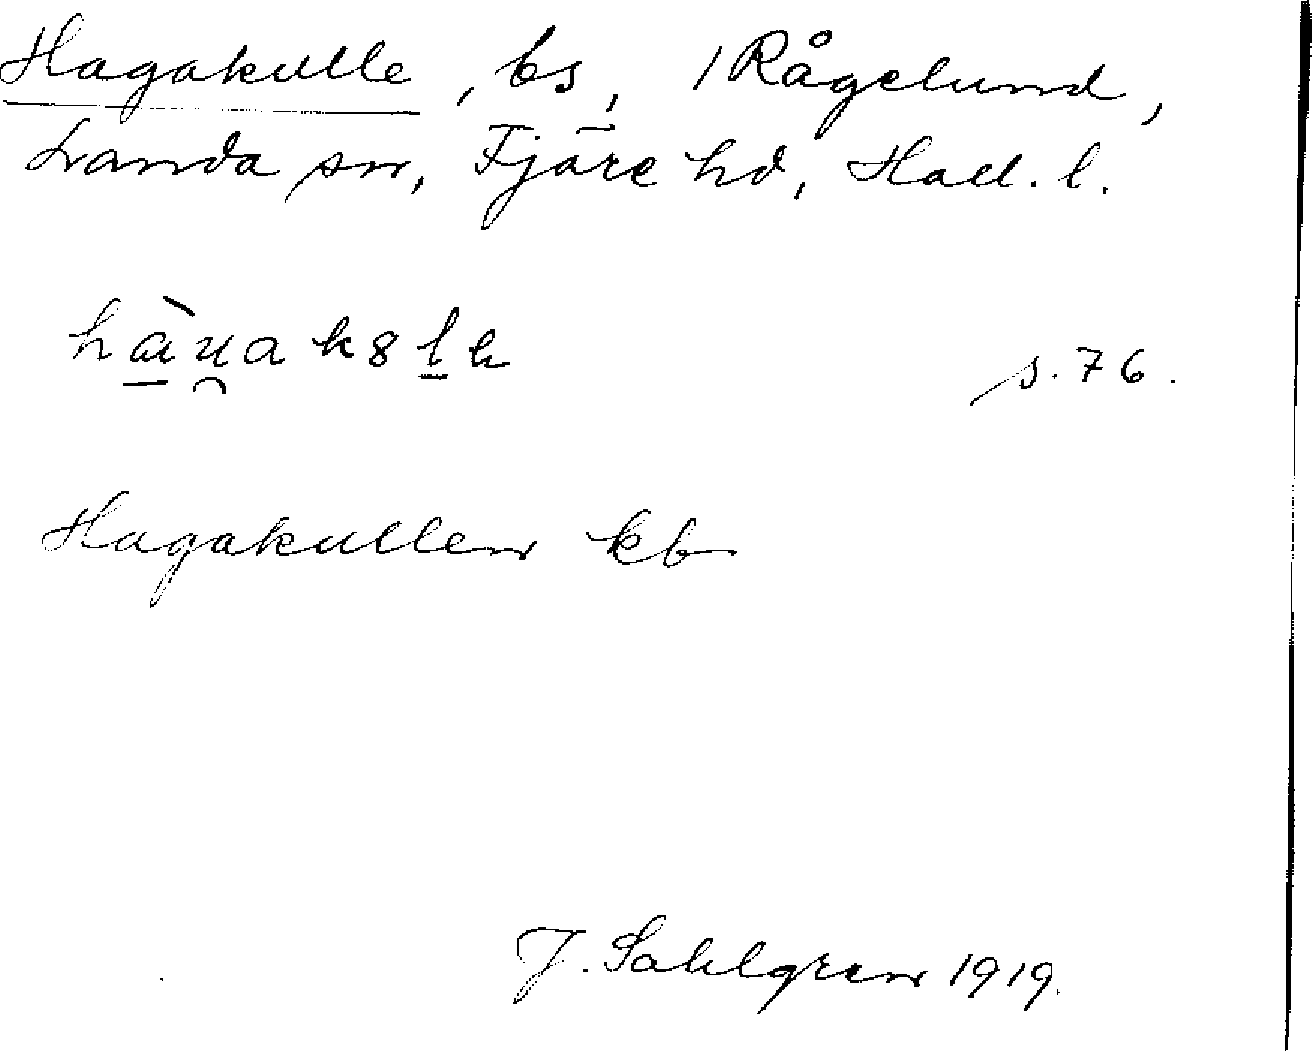 Hagakulle, bs, /Rågelund,
Landa sn, Fjäre hd, Hall. l.
s. 76.
Hagakullen kb
J. Sahlgren 1919.